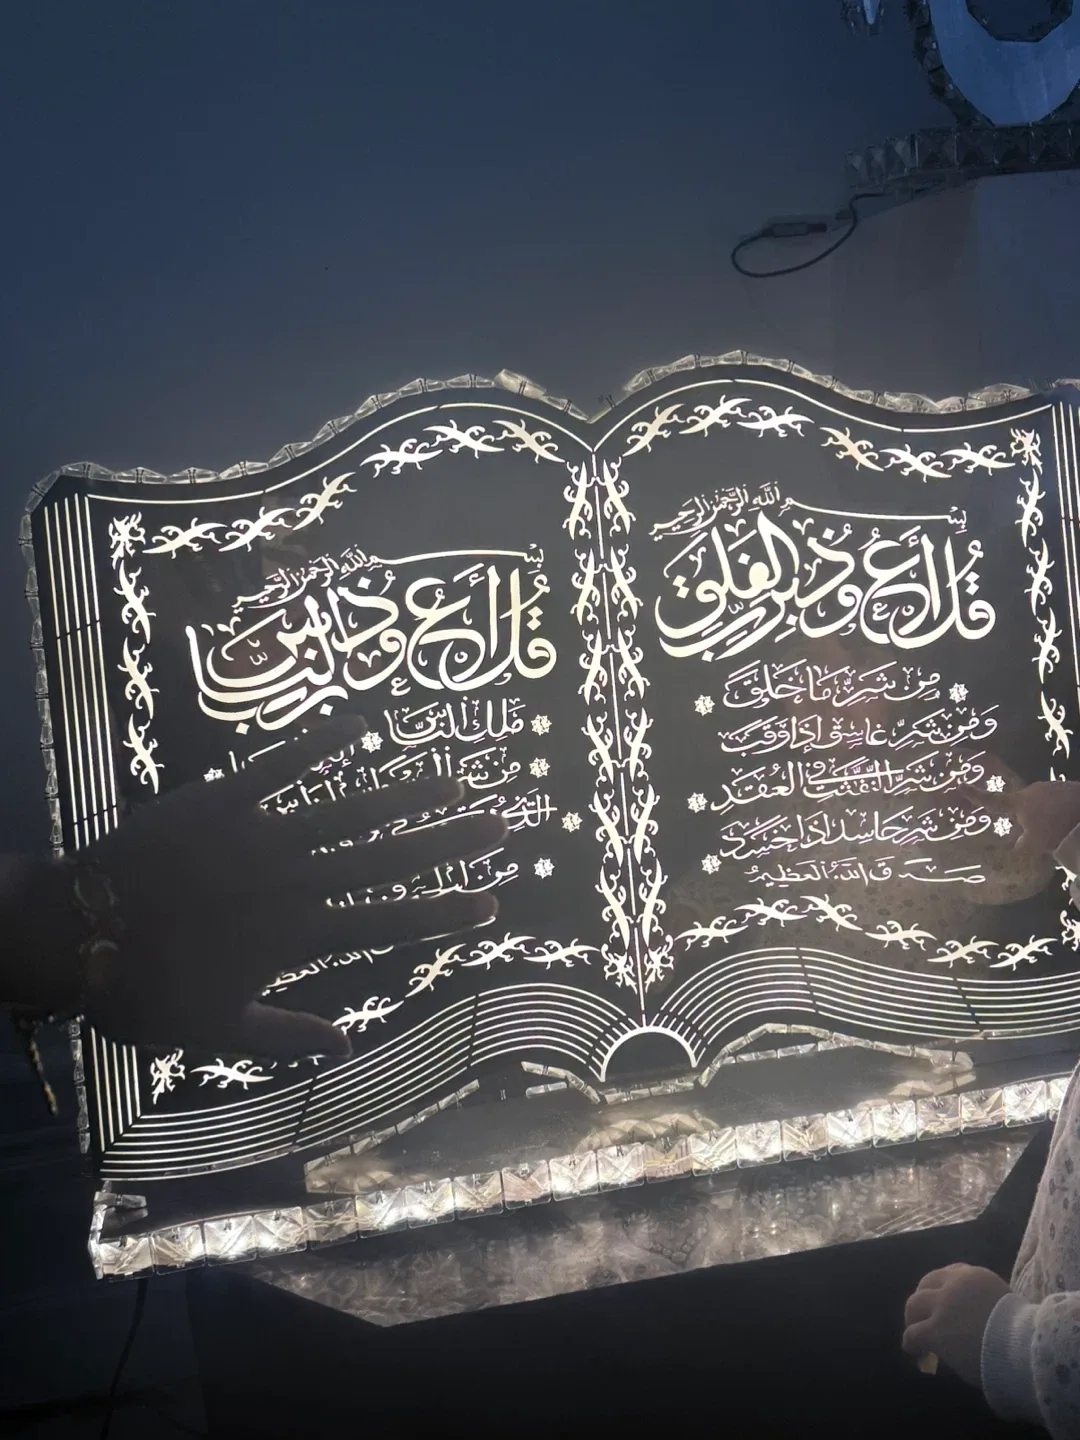 بِسْمِ اللَّهِ الرَّحْمَنِ الرَّحِيمِ
قُلْ أَعُوذُ بِرَبِّ الْفَلَقِ
مِن شَرِّ مَا خَلَقَ
وَمِن شَرِّ غَاسِقٍ إِذَا وَقَبَ
وَمِن شَرِّ النَّفَّاثَاتِ فِي الْعُقَدِ
وَمِن شَرِّ حَاسِدٍ إِذَا حَسَدَ
صَدَقَ اللَّهُ الْعَظِيمُ
بِسْمِ اللَّهِ الرَّحْمَنِ الرَّحِيمِ
قُلْ أَعُوذُ بِرَبِّ النَّاسِ
مَلِكِ النَّاسِ
مِن شَرِّ
الَّذِي
مِنَ
اللَّهُ الْعَظِيمُ